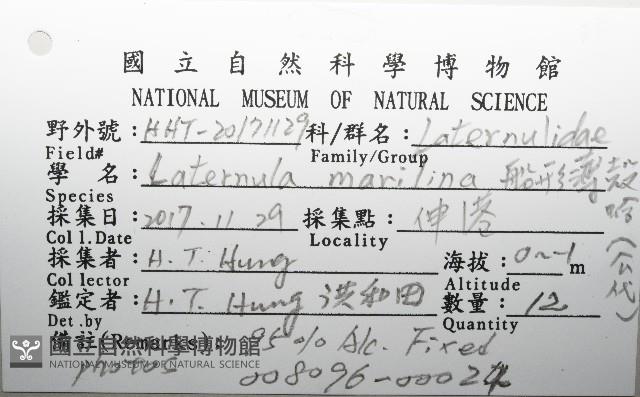 國立自然科學博物館
NATIONAL MUSEUM OF NATURAL SCIENCE
野外號：HHT-20171129 科/群名：Laternulidae
Field# Family/Group
學 名：Laternula marilina 船形薄殼蛤(公代)
Species
採集日：2017.11.29 採集點：伸港
Coll.Date Locality
採集者：H.T. Hung 海拔：0~-1 m
Collector Altitude
鑑定者：H.T. Hung 洪和田 數量：12
Det.by Quantity
備註(Remarks)：95% Alc. Fixed
國立自然科學博物館
NATIONAL MUSEUM OF NATURAL SCIENCE
photos 008096-00024